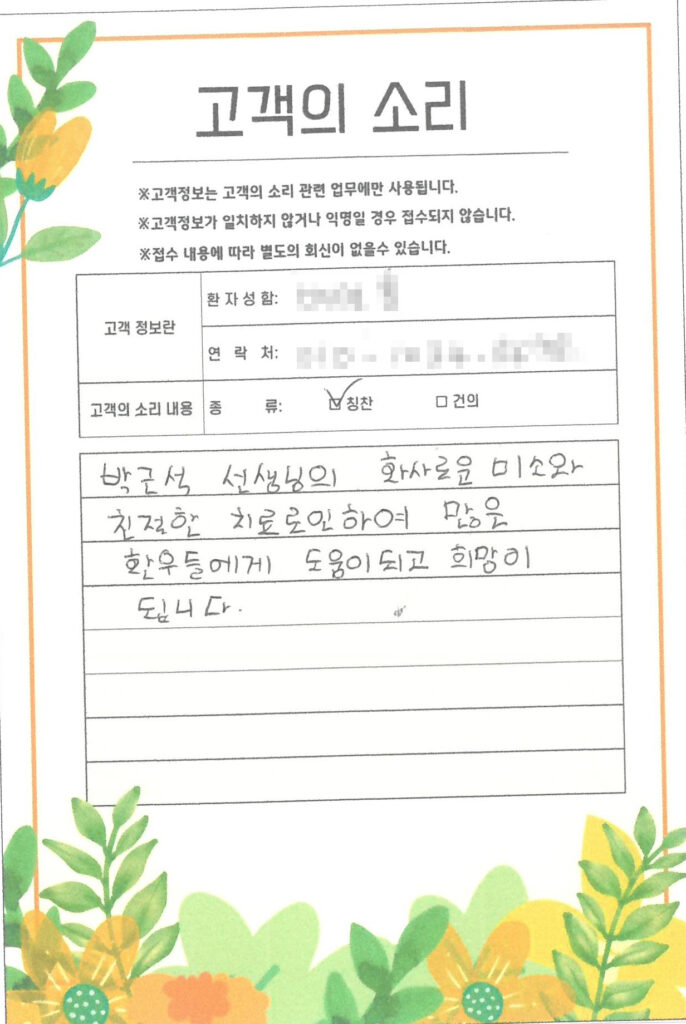 고객의 소리
※고객정보는 고객의 소리 관련 업무에만 사용됩니다.
※고객정보가 일치하지 않거나 익명일 경우 접수되지 않습니다.
※접수 내용에 따라 별도의 회신이 없을수 있습니다.
고객 정보란
환자성함:
연 락 처:
고객의 소리 내용 종 류: ☑칭찬 □건의
박근석 선생님의 화사로운 미소와
친절한 치료로인하여 많은
환우들에게 도움이되고 희망이
됩니다.